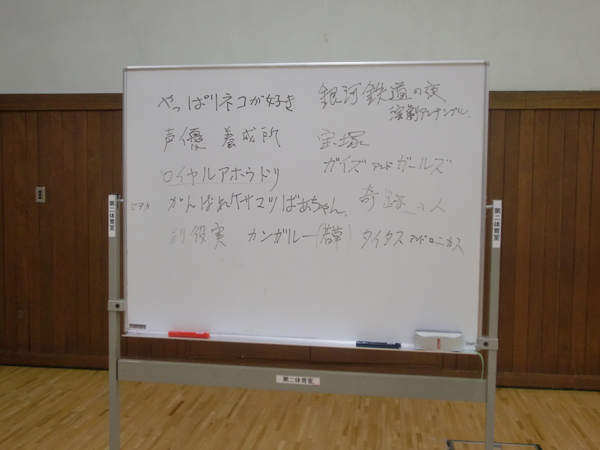 やっぱりネコが好き
銀河鉄道の夜
演劇アンサンブル
声優 養成所
宝塚
ガイズ アンド ガールズ
ロイヤルアホウドリ
がんばれケサマツばあちゃん
奇跡の人
別役実 カンガルー
タイタス アンドロニカス
第二体育室
第二体育室
第二体育室